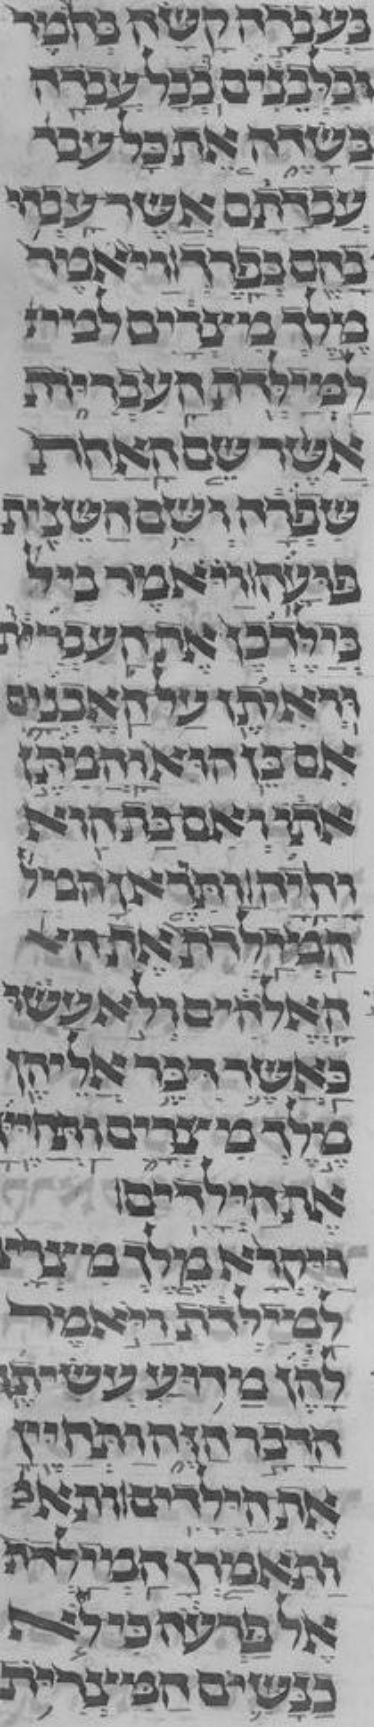 בעבדה קשה בחמר
ובלבנים ובכל עבדה
בשדה את כל עבד
עבדתם אשר עבדו
בהם בפרך ויאמר
מלך מצרים למית
למילדת העבריות
אשר שם האחת
שפרה ושם השנית
פועה ויאמר ביל
בילדכן את העבריות
וראיתן על האבנים
אם בן הוא והמתן
אתו ואם בת הוא
וחיה ותראן המיל
המילדת את הא
האלהים ולא עשו
כאשר דבר אליהן
מלך מצרים ותחיין
את הילדים
ויקרא מלך מצרים
למילדת ויאמר
להן מדוע עשיתן
הדבר הזה ותחיין
את הילדים ותאמ
ותאמרן המילדת
אל פרעה כי לא
כנשים המצרית